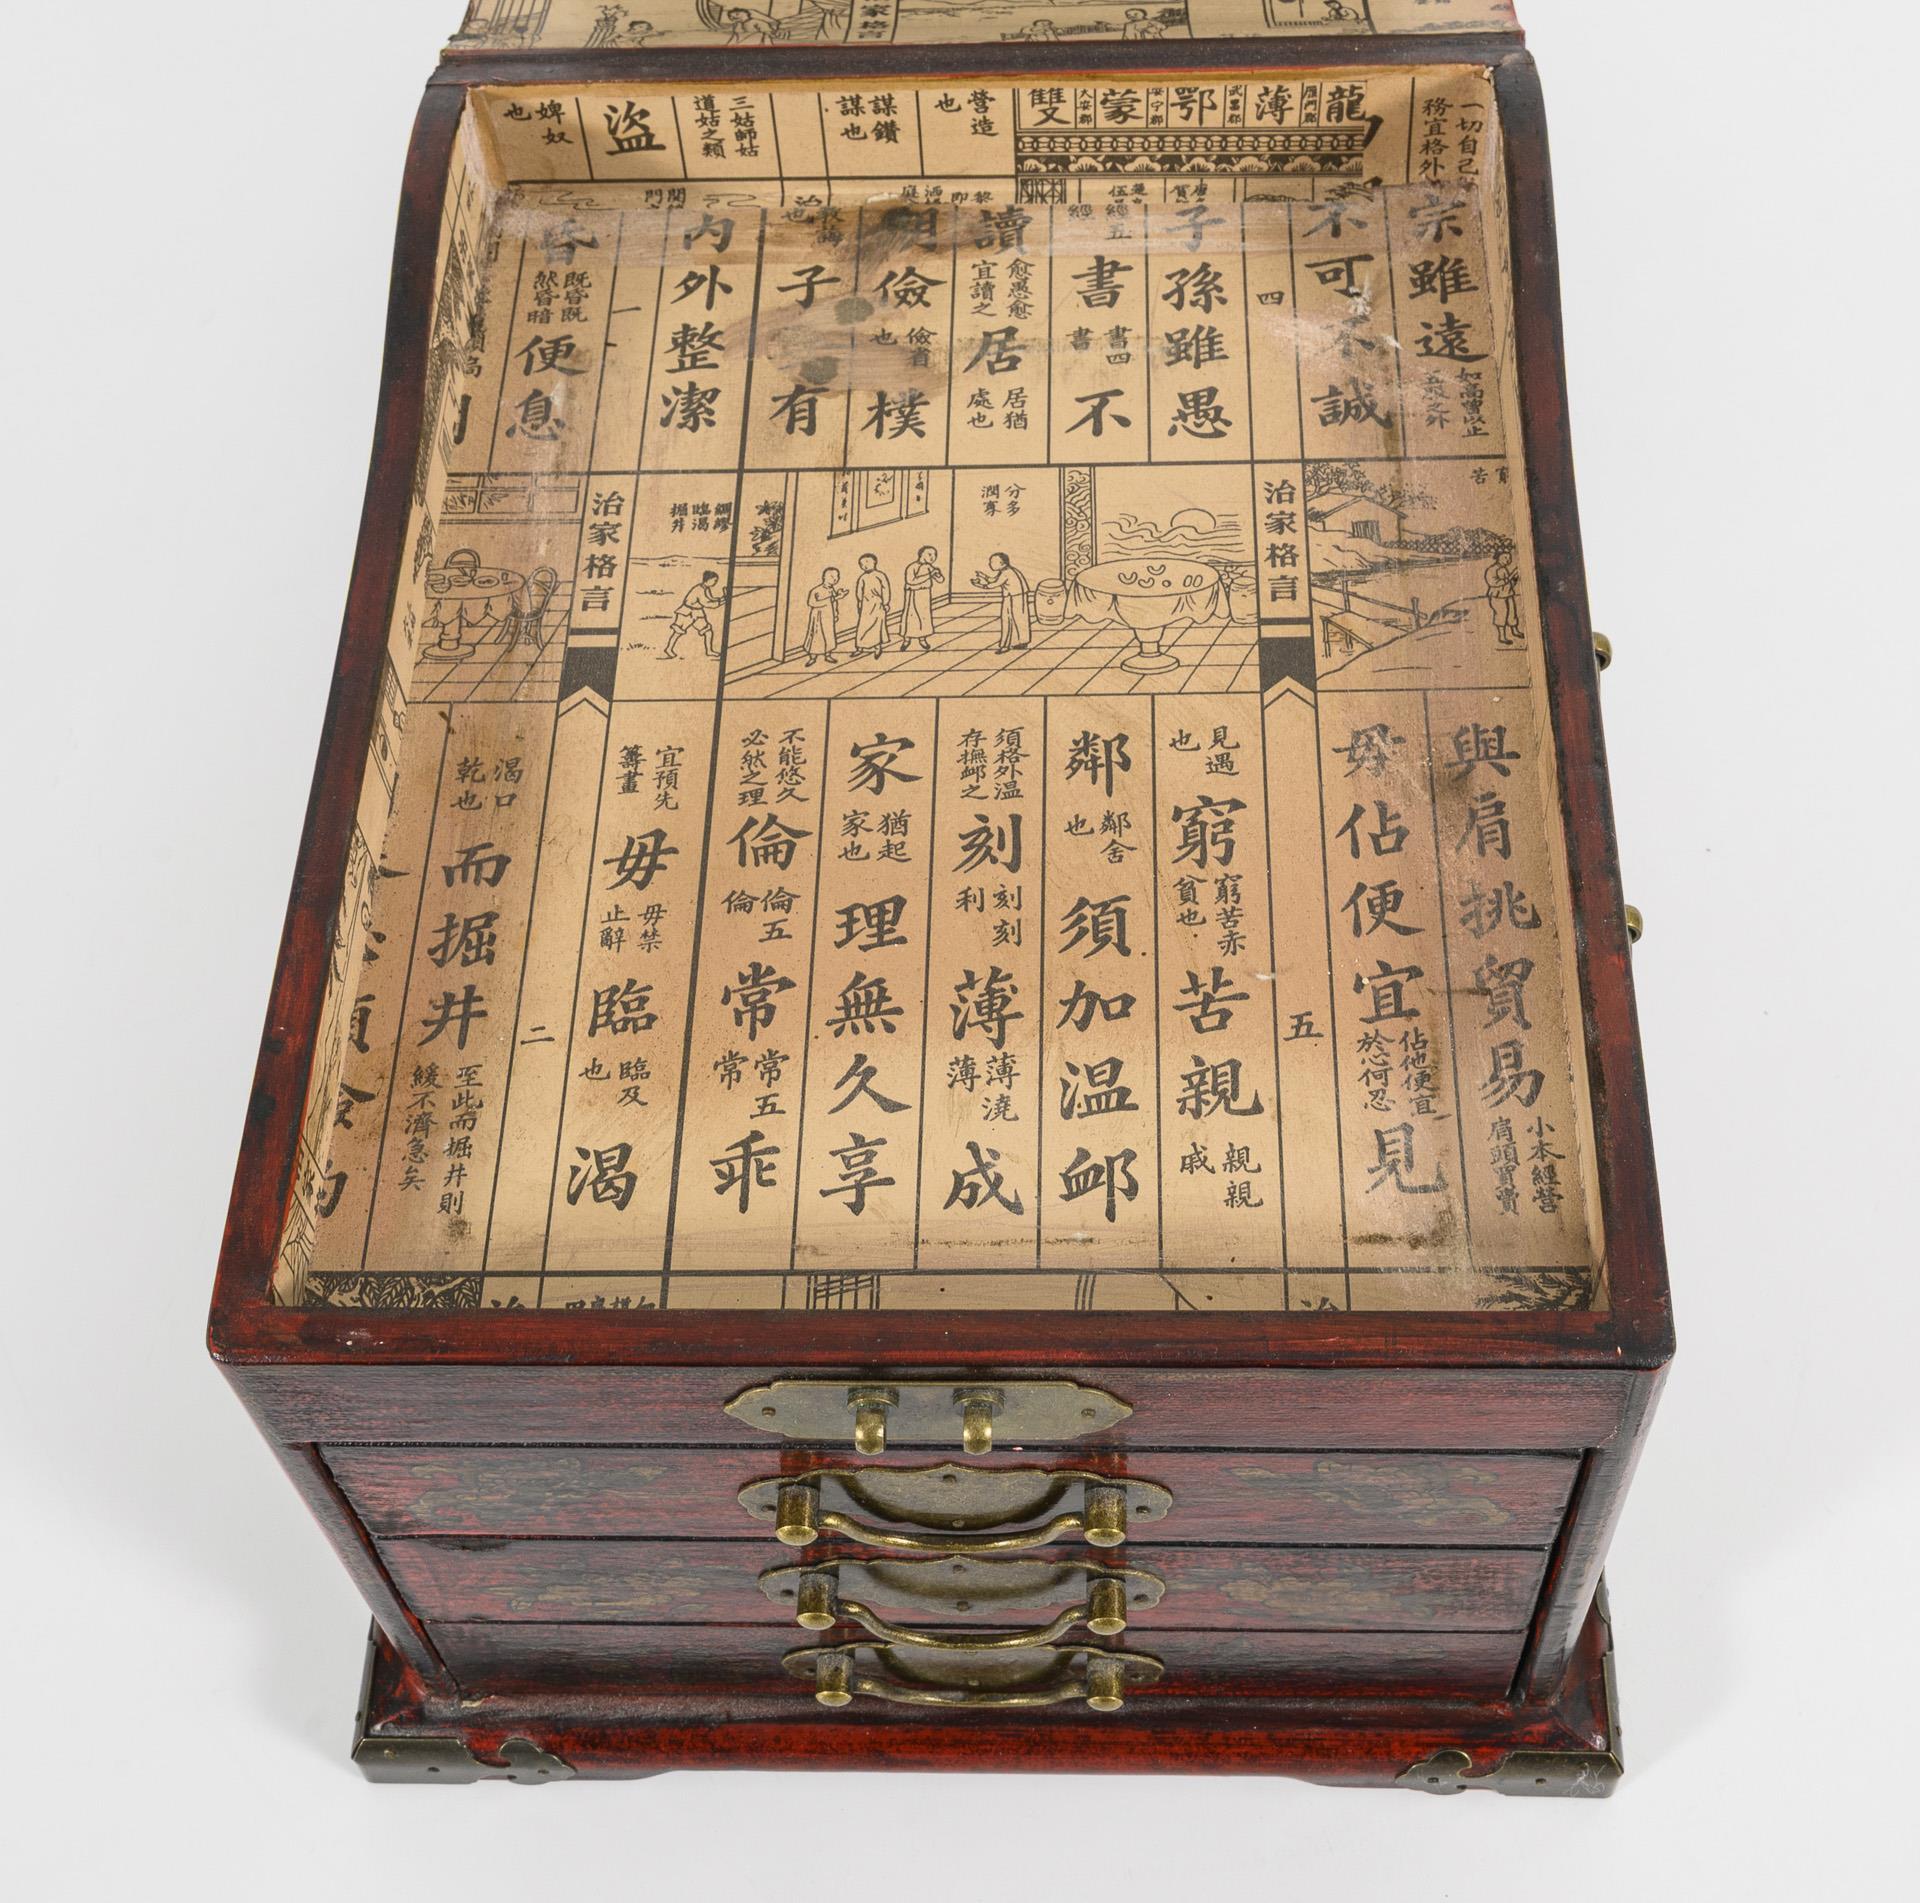 一切自己
務宜格外
龍
雁門郡
薄
武昌郡
鄂
安宁郡
蒙
大安郡
雙
營造
也
謀鑽
謀也
三姑師姑
道姑之類
盜
婢奴
也
宗雖遠
不可不誠
四
子孫雖愚
經五
書
書四
書
不
讀
愈愚愈
宜讀之
居
居猶
處也
儉
儉省
也
樸
子
有
內外整潔
一
昏
既昏既
然昏暗
便息
窮
苦
治家格言
分多
潤寡
綢繆
臨渴
掘井
治家格言
與肩挑貿易
小本經營
肩頭買賣
毋佔便宜
佔他便宜
於心何忍
見
五
見遇
也
窮
窮苦赤
貧也
苦親
親親
戚
鄰
鄰舍
也
須加温卹
須格外温
存撫卹之
刻
刻刻
利
薄
薄澆
薄
成
家
猶起
家也
理無久享
不能悠久
必然之理
倫
倫五
倫
常
常五
常
乖
宜預先
籌畫
毋
毋禁
止辭
臨
臨及
也
渴
二
渴口
乾也
而掘井
至此而掘井則
緩不濟急矣